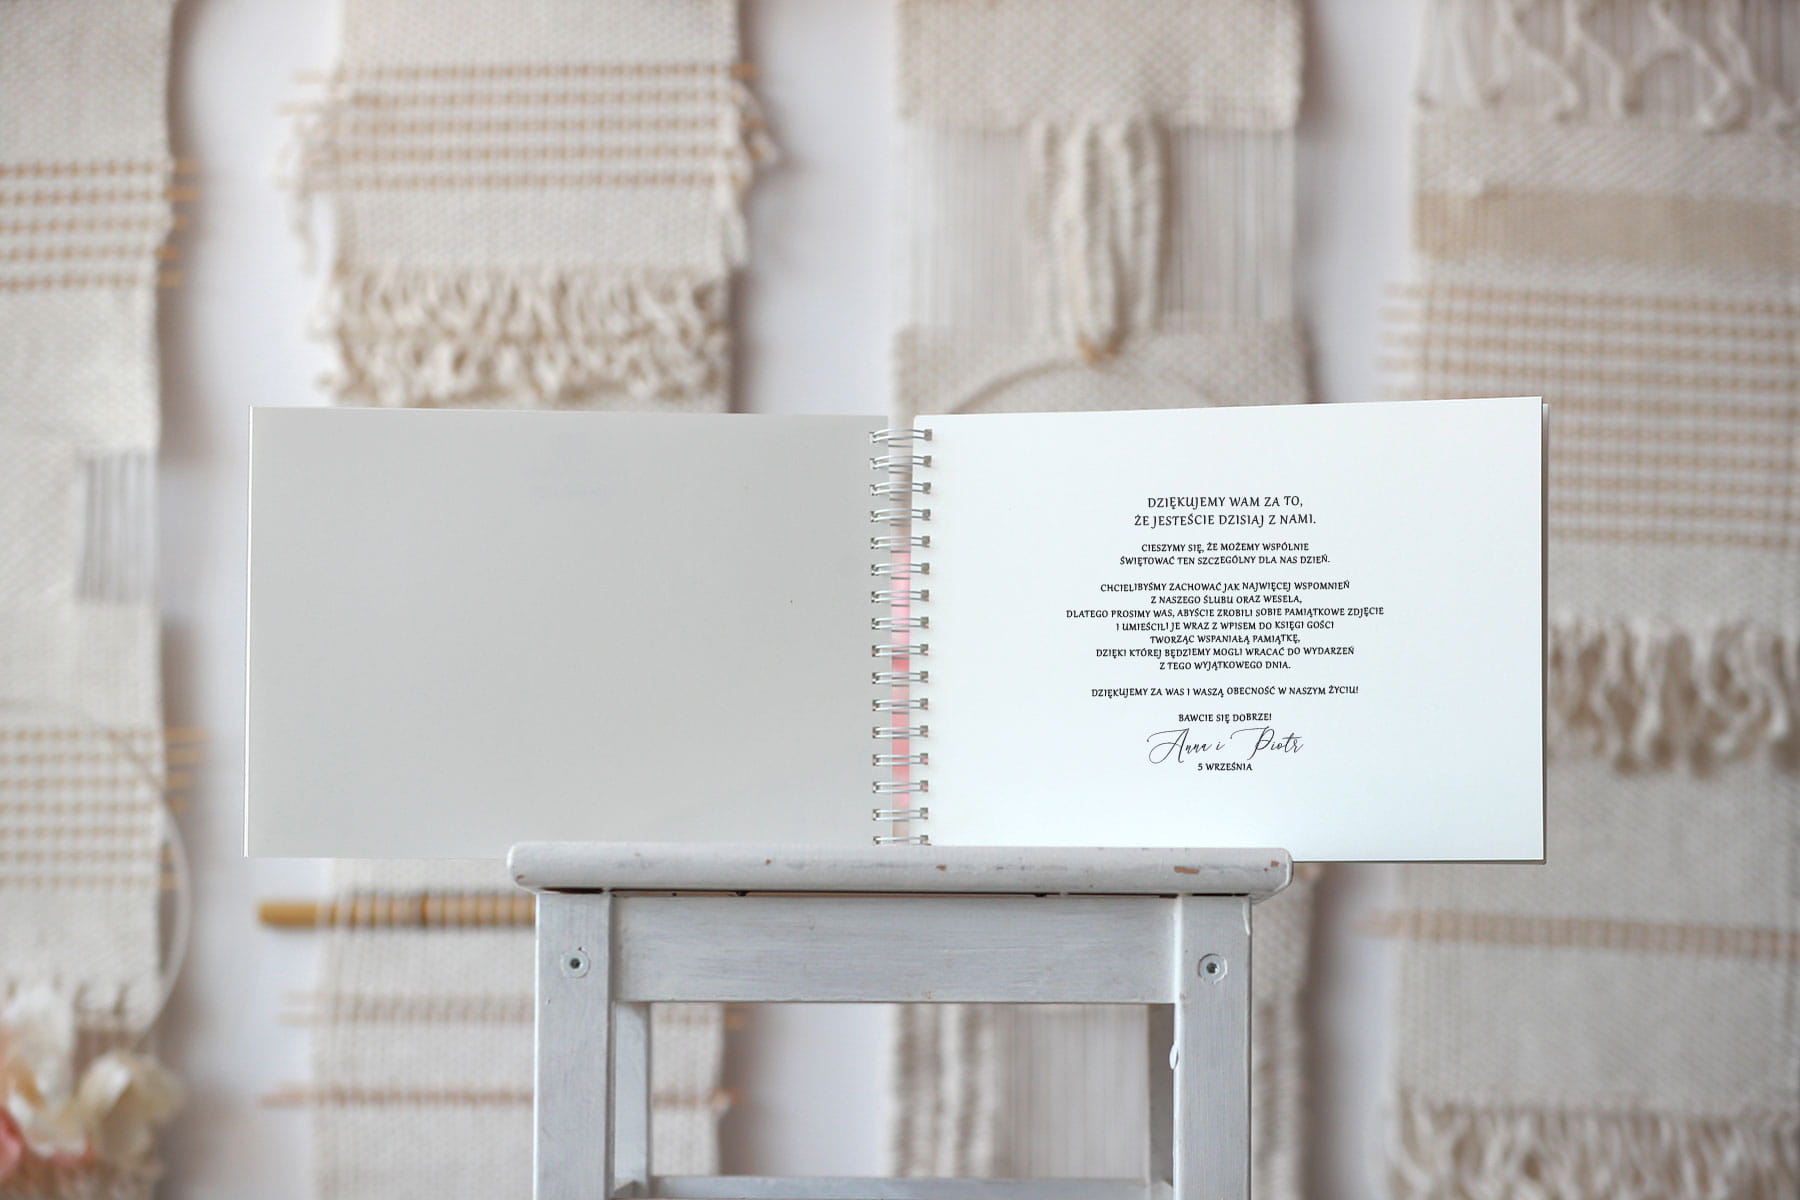 DZIĘKUJEMY WAM ZA TO,
ŻE JESTEŚCIE DZISIAJ Z NAMI.
CIESZYMY SIĘ, ŻE MOŻEMY WSPÓLNIE
ŚWIĘTOWAĆ TEN SZCZEGÓLNY DLA NAS DZIEŃ.
CHCIELIBYŚMY ZACHOWAĆ JAK NAJWIĘCEJ WSPOMNIEŃ
Z NASZEGO ŚLUBU ORAZ WESELA,
DLATEGO PROSIMY WAS, ABYŚCIE ZROBILI SOBIE PAMIĄTKOWE ZDJĘCIE
I UMIEŚCILI JE WRAZ Z WPISEM DO KSIĘGI GOŚCI
TWORZĄC WSPANIAŁĄ PAMIĄTKĘ,
DZIĘKI KTÓREJ BĘDZIEMY MOGLI WRACAĆ DO WYDARZEŃ
Z TEGO WYJĄTKOWEGO DNIA.
DZIĘKUJEMY ZA WAS I WASZĄ OBECNOŚĆ W NASZYM ŻYCIU!
BAWCIE SIĘ DOBRZE!
Anna i Piotr
5 WRZEŚNIA